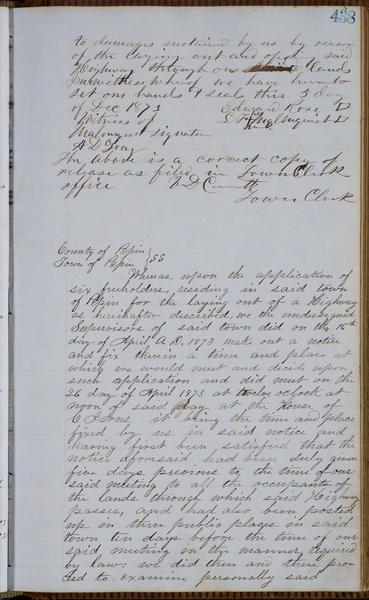 433
to damages sustained by us by reason
of the laying out and of said
Highway through our land
In witness whereof we have hereunto
set our hands & seals this 3 day
of Dec 1873 Edward Rose
Witness of
signature
A D Gray
The above is a correct copy of
release as filed in Town Clerk
office
Town Clerk
County of Pepin } SS
Town of Pepin
Whereas upon the application of
six freeholders, residing in said town
of Pepin for the laying out of a Highway
as hereinafter described, we the undersigned
Supervisors of said town did on the 16th
day of April A.D. 1873 make out a notice
and fix therein a time and place at
which we would meet and decide upon
such application and did meet on the
26 day of April 1873 at twelve oclock at
noon of said day at the house of
it being the time and place
fixed by us in said notice and
having first been satisfied that the
notice aforesaid had been duly given
five days previous to the time of our
said meeting to all the occupants of
the lands through which said Highway
passes, and had also been posted
up in three public places in said
town ten days before the time of our
said meeting in the manner required
by law: we did then and there pro-
ceed to examine personally said